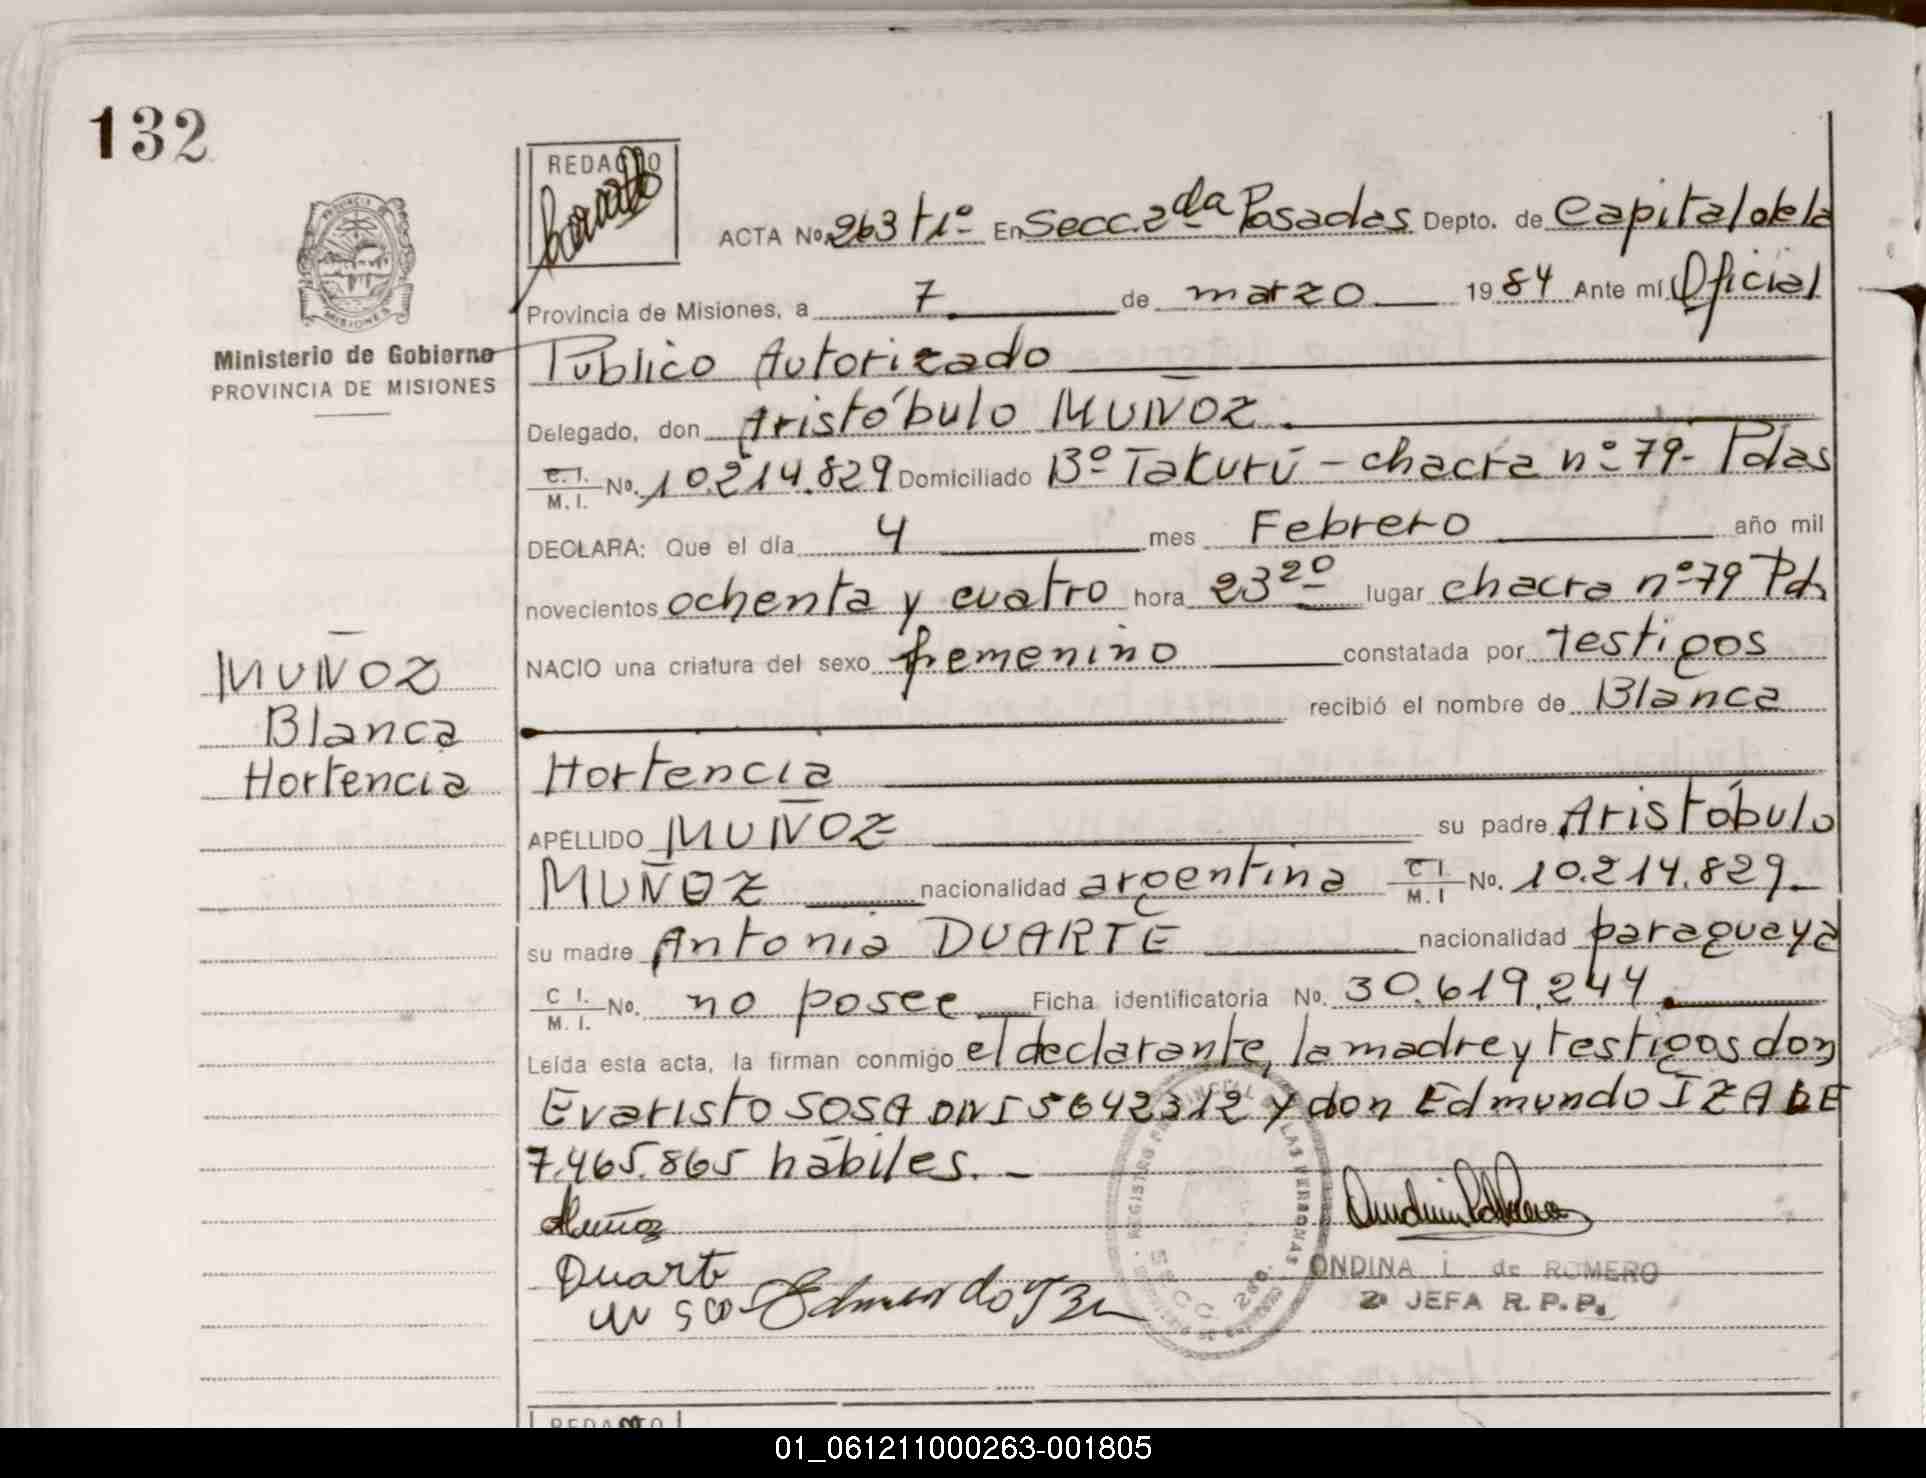 132
REDACTO
ACTA No. 263 t1º En Secc. 2da Posadas Depto. de Capital de la
Provincia de Misiones, a 7 de marzo 1984 Ante mí Oficial
PROVINCIA
MISIONES
Ministerio de Gobierno
PROVINCIA DE MISIONES
Público Autorizado
Delegado, don Aristóbulo MUÑOZ.
C.I. M.I. No. 10.214.829 Domiciliado Bº Takurú - chacra nº 79 - Pdas
DECLARA: Que el día 4 mes Febrero año mil
novecientos ochenta y cuatro hora 23 20 lugar chacra nº 79 Pds
NACIO una criatura del sexo femenino constatada por testigos
recibió el nombre de Blanca
Hortencia
MUÑOZ
Blanca
Hortencia
APELLIDO MUÑOZ su padre Aristóbulo
MUÑOZ nacionalidad argentina C I. M. I No. 10.214.829
su madre Antonia DUARTE nacionalidad paraguaya
C I. M. I. No. no posee Ficha identificatoria No. 30.619.244.
Leída esta acta, la firman conmigo el declarante, la madre y testigos don
Evaristo SOSA DNI 5642312 y don Edmundo IZA DE
7.465.865 hábiles. -
Muñoz
Duarte
Edmundo
REGISTRO PROVINCIAL DE LAS PERSONAS
SECC. 2da.
ONDINA I. de ROMERO
2ª JEFA R. P. P.
REDACTO
01_061211000263-001805